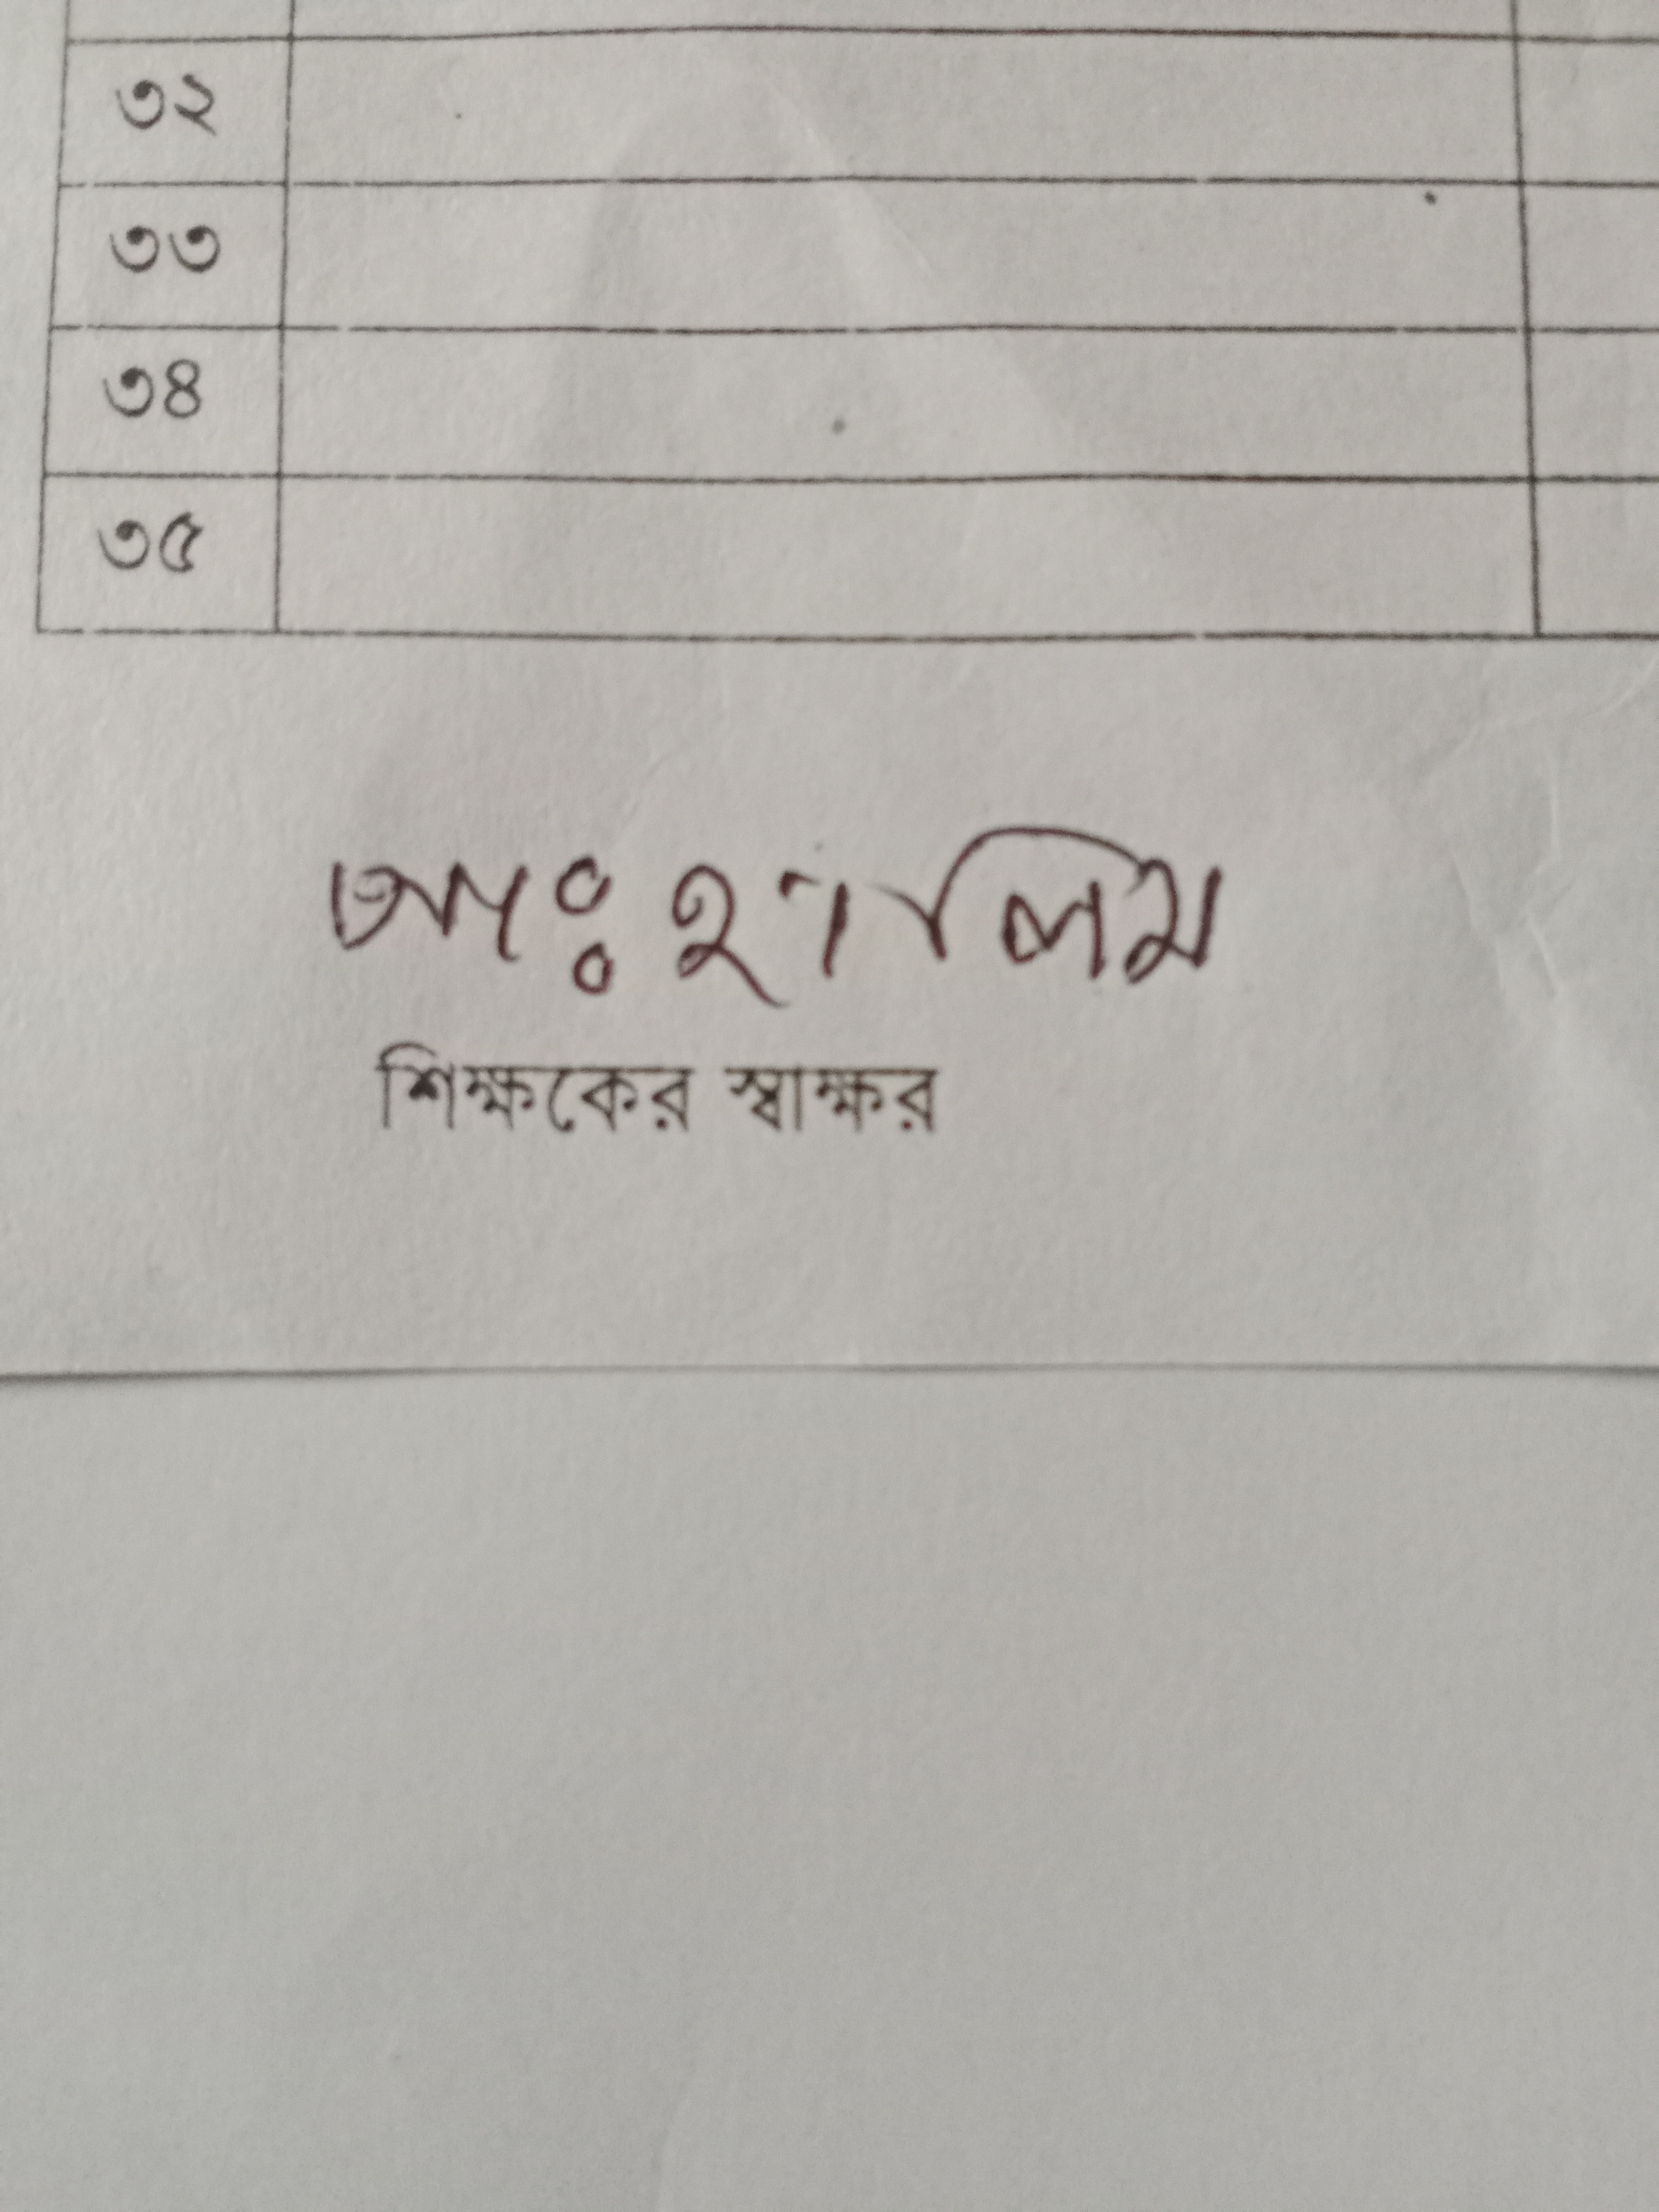 ৩২
৩৩
৩৪
৩৫
আঃ হালিম
শিক্ষকের স্বাক্ষর